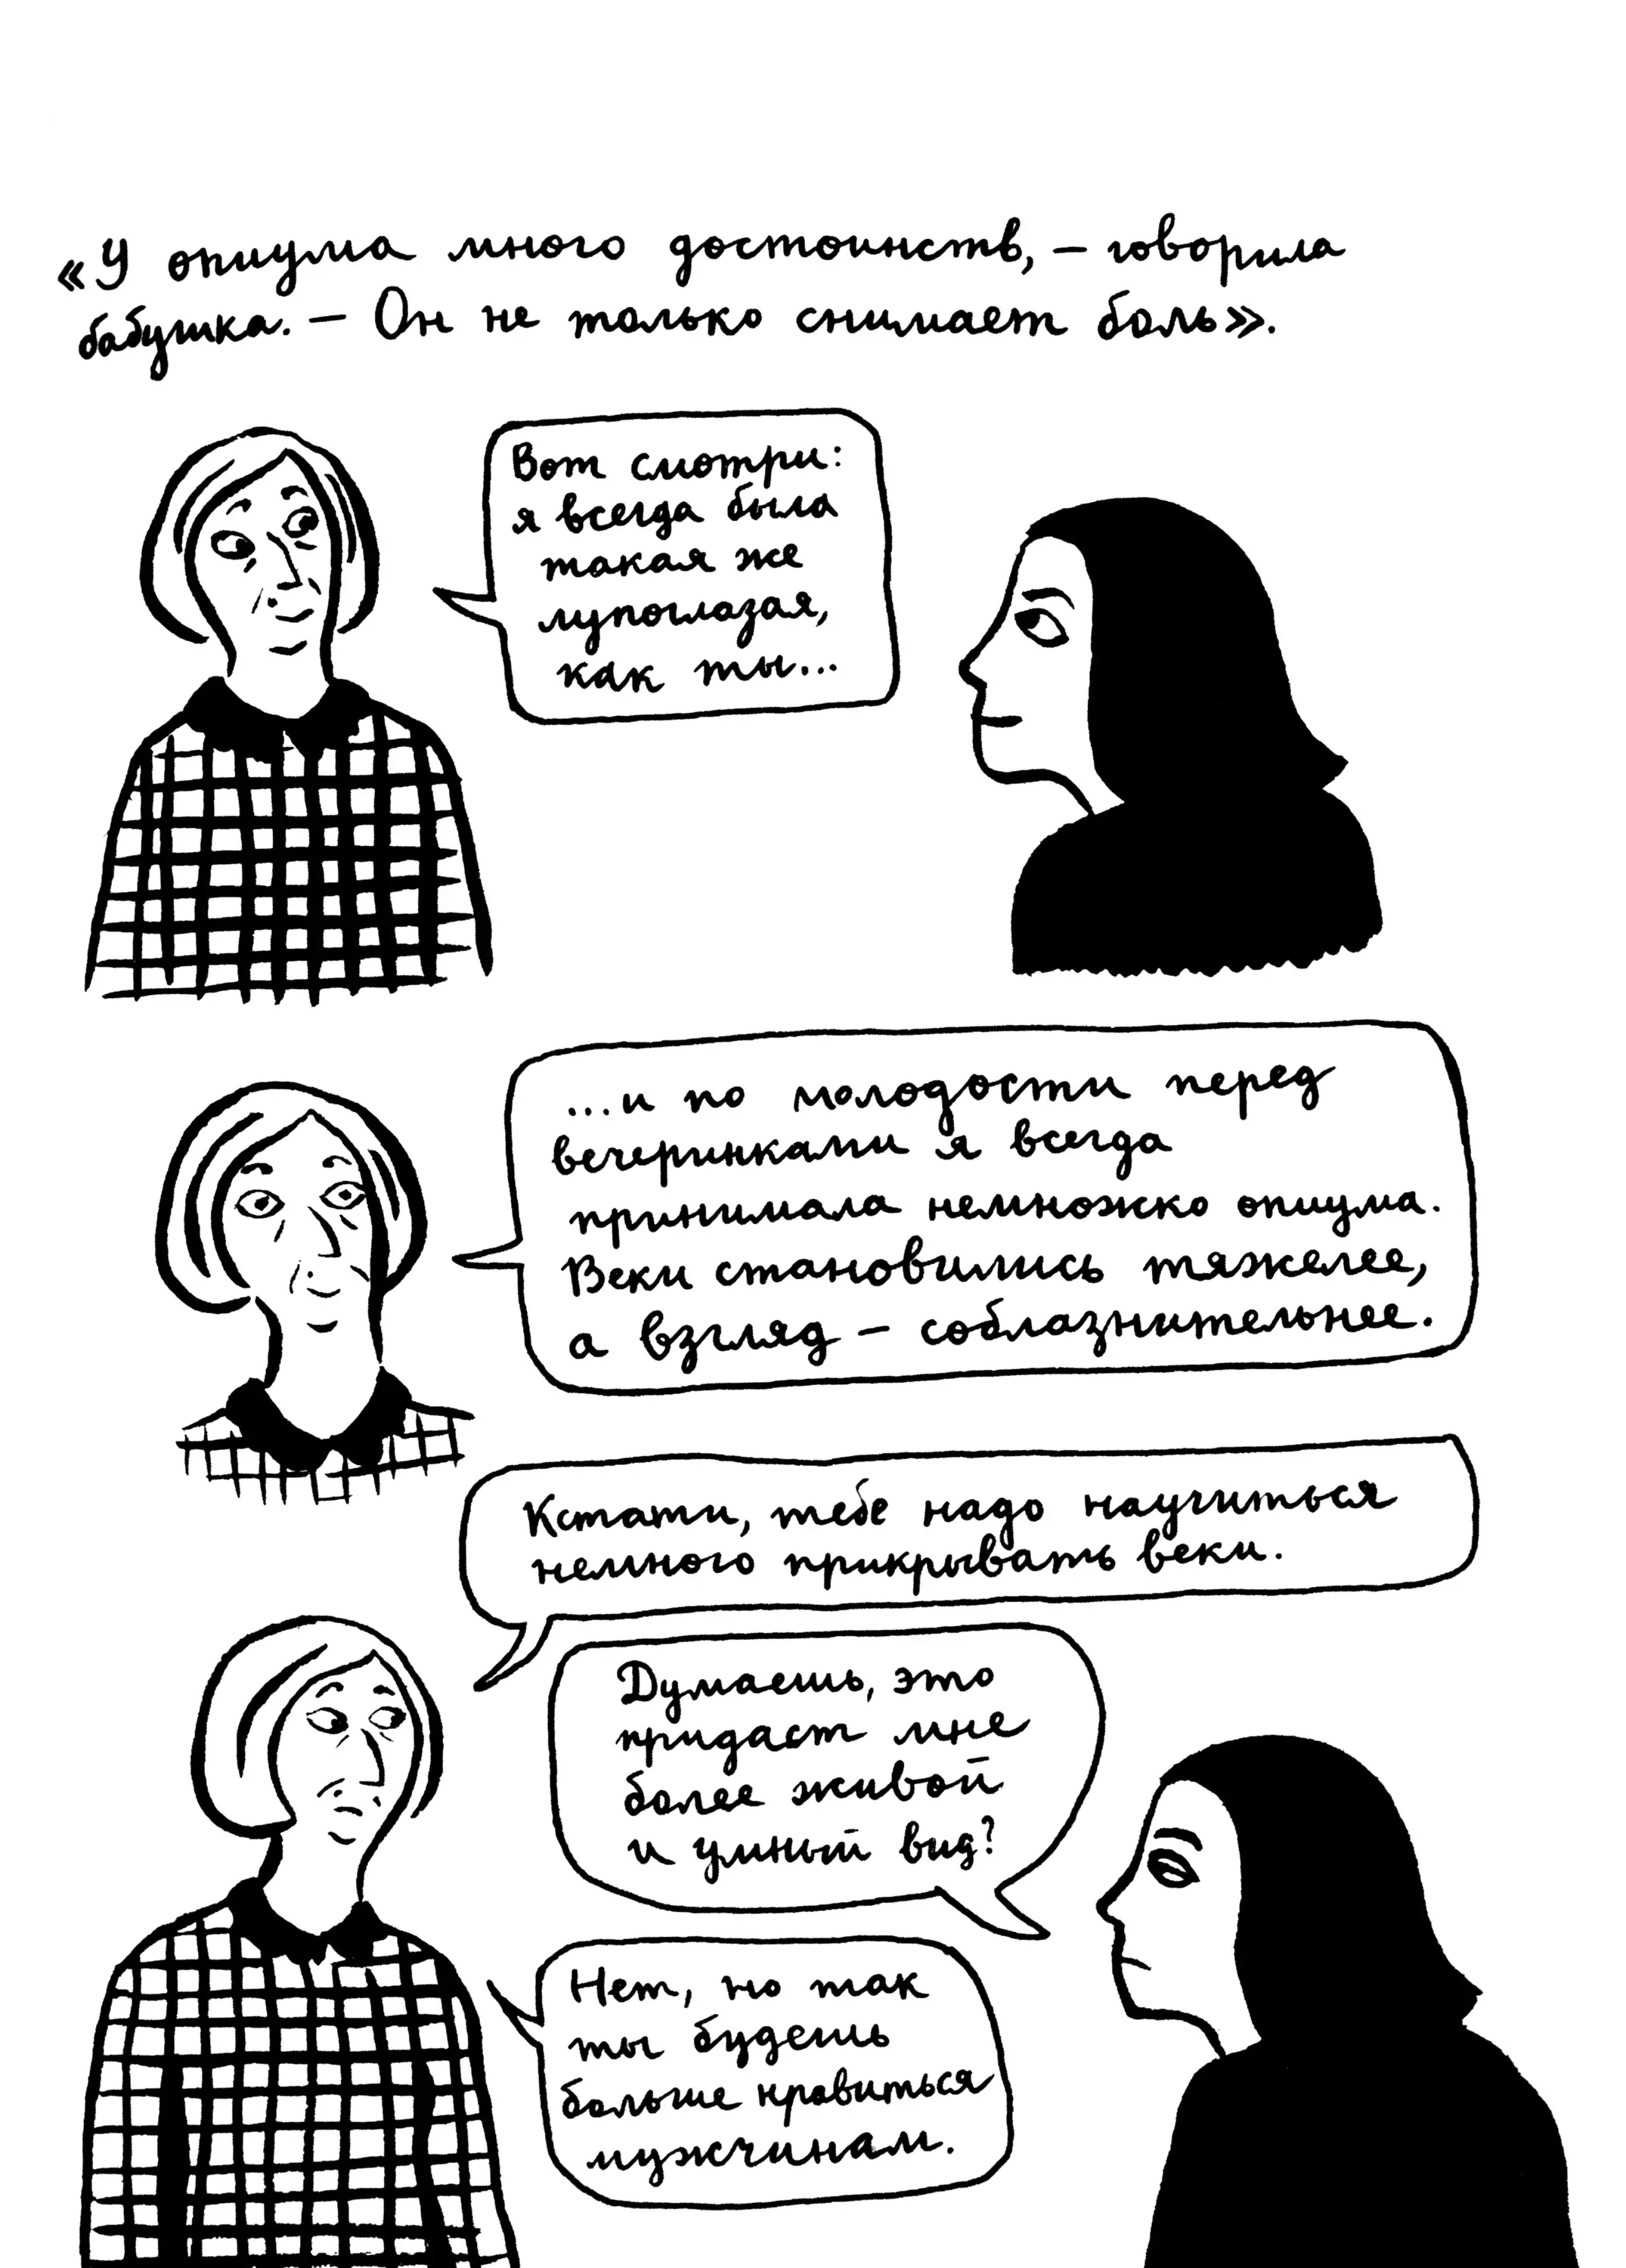 «У опиума много достоинств, – говорила
бабушка. – Он не только снимает боль».
Вот смотри:
я всегда была
такая же
лупоглазая,
как ты...
...и по молодости перед
вечеринками я всегда
принимала немножко опиума.
Веки становились тяжелее,
а взгляд – соблазнительнее.
Кстати, тебе надо научиться
немного прикрывать веки.
Думаешь, это
придаст мне
более живой
и умный вид?
Нет, но так
ты будешь
больше нравиться
мужчинам.